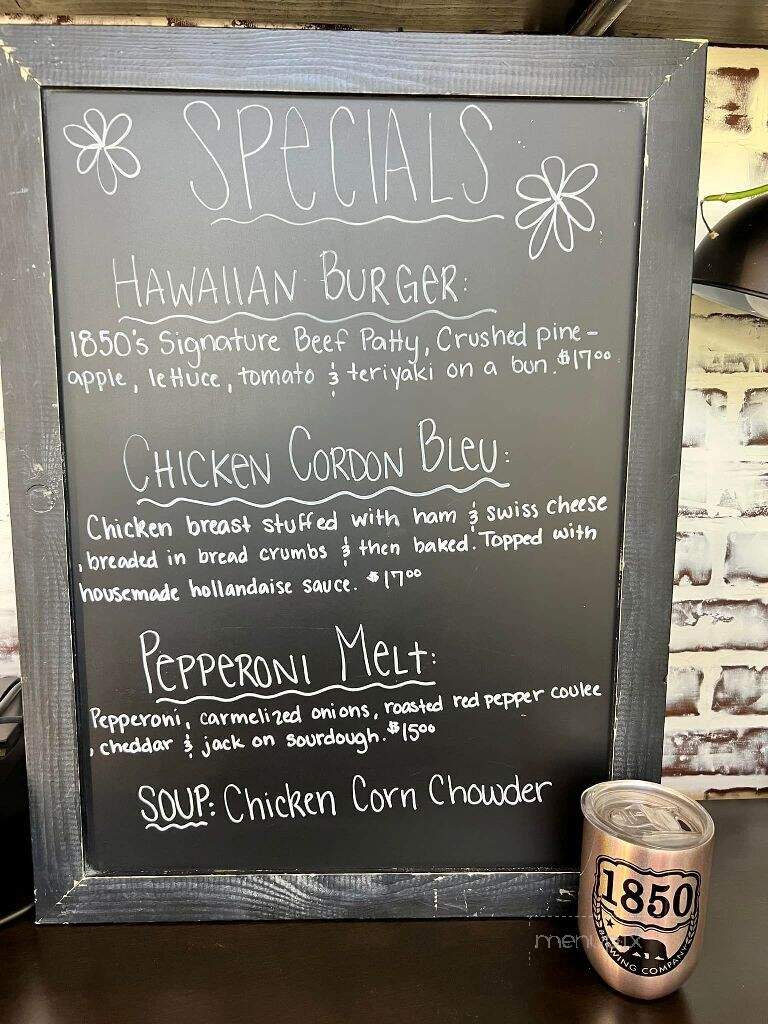 SPECIALS
HAWAIIAN BURGER:
1850's Signature Beef Patty, Crushed pine-
apple, lettuce, tomato & teriyaki on a bun. $17⁰⁰
CHICKEN CORDON BLEU:
Chicken breast stuffed with ham & swiss cheese
, breaded in bread crumbs & then baked. Topped with
housemade hollandaise sauce. $17⁰⁰
PEPPERONI MELT:
Pepperoni, carmelized onions, roasted red pepper coulee
, cheddar & jack on sourdough. $15⁰⁰
SOUP: Chicken Corn Chowder
1850
BREWING COMPANY
menupix